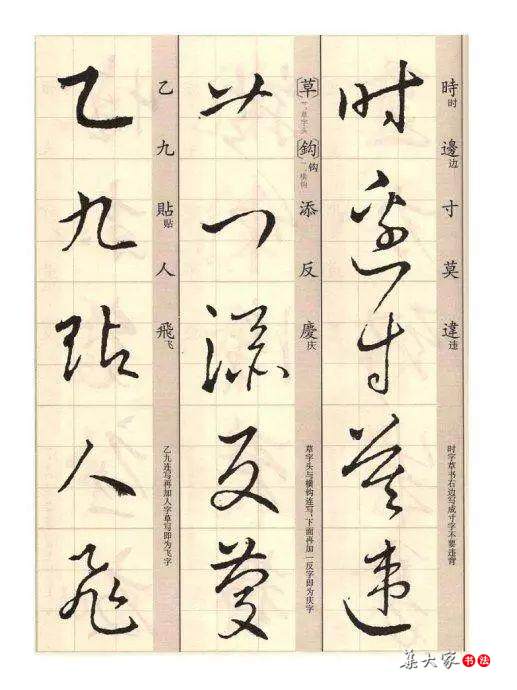 時时 邊边 寸 莫 違违
时字草书右边写成寸字不要违背
時邊寸莫違
〔草〕 〔鈎〕钩 添 反 慶庆
草字头
横钩
草字头与横钩连写，下面再加一反字即为庆字
添反慶
乙 九 貼贴 人 飛飞
乙九连写再加人字草写即为飞字
乙九貼人飛
集大家书法